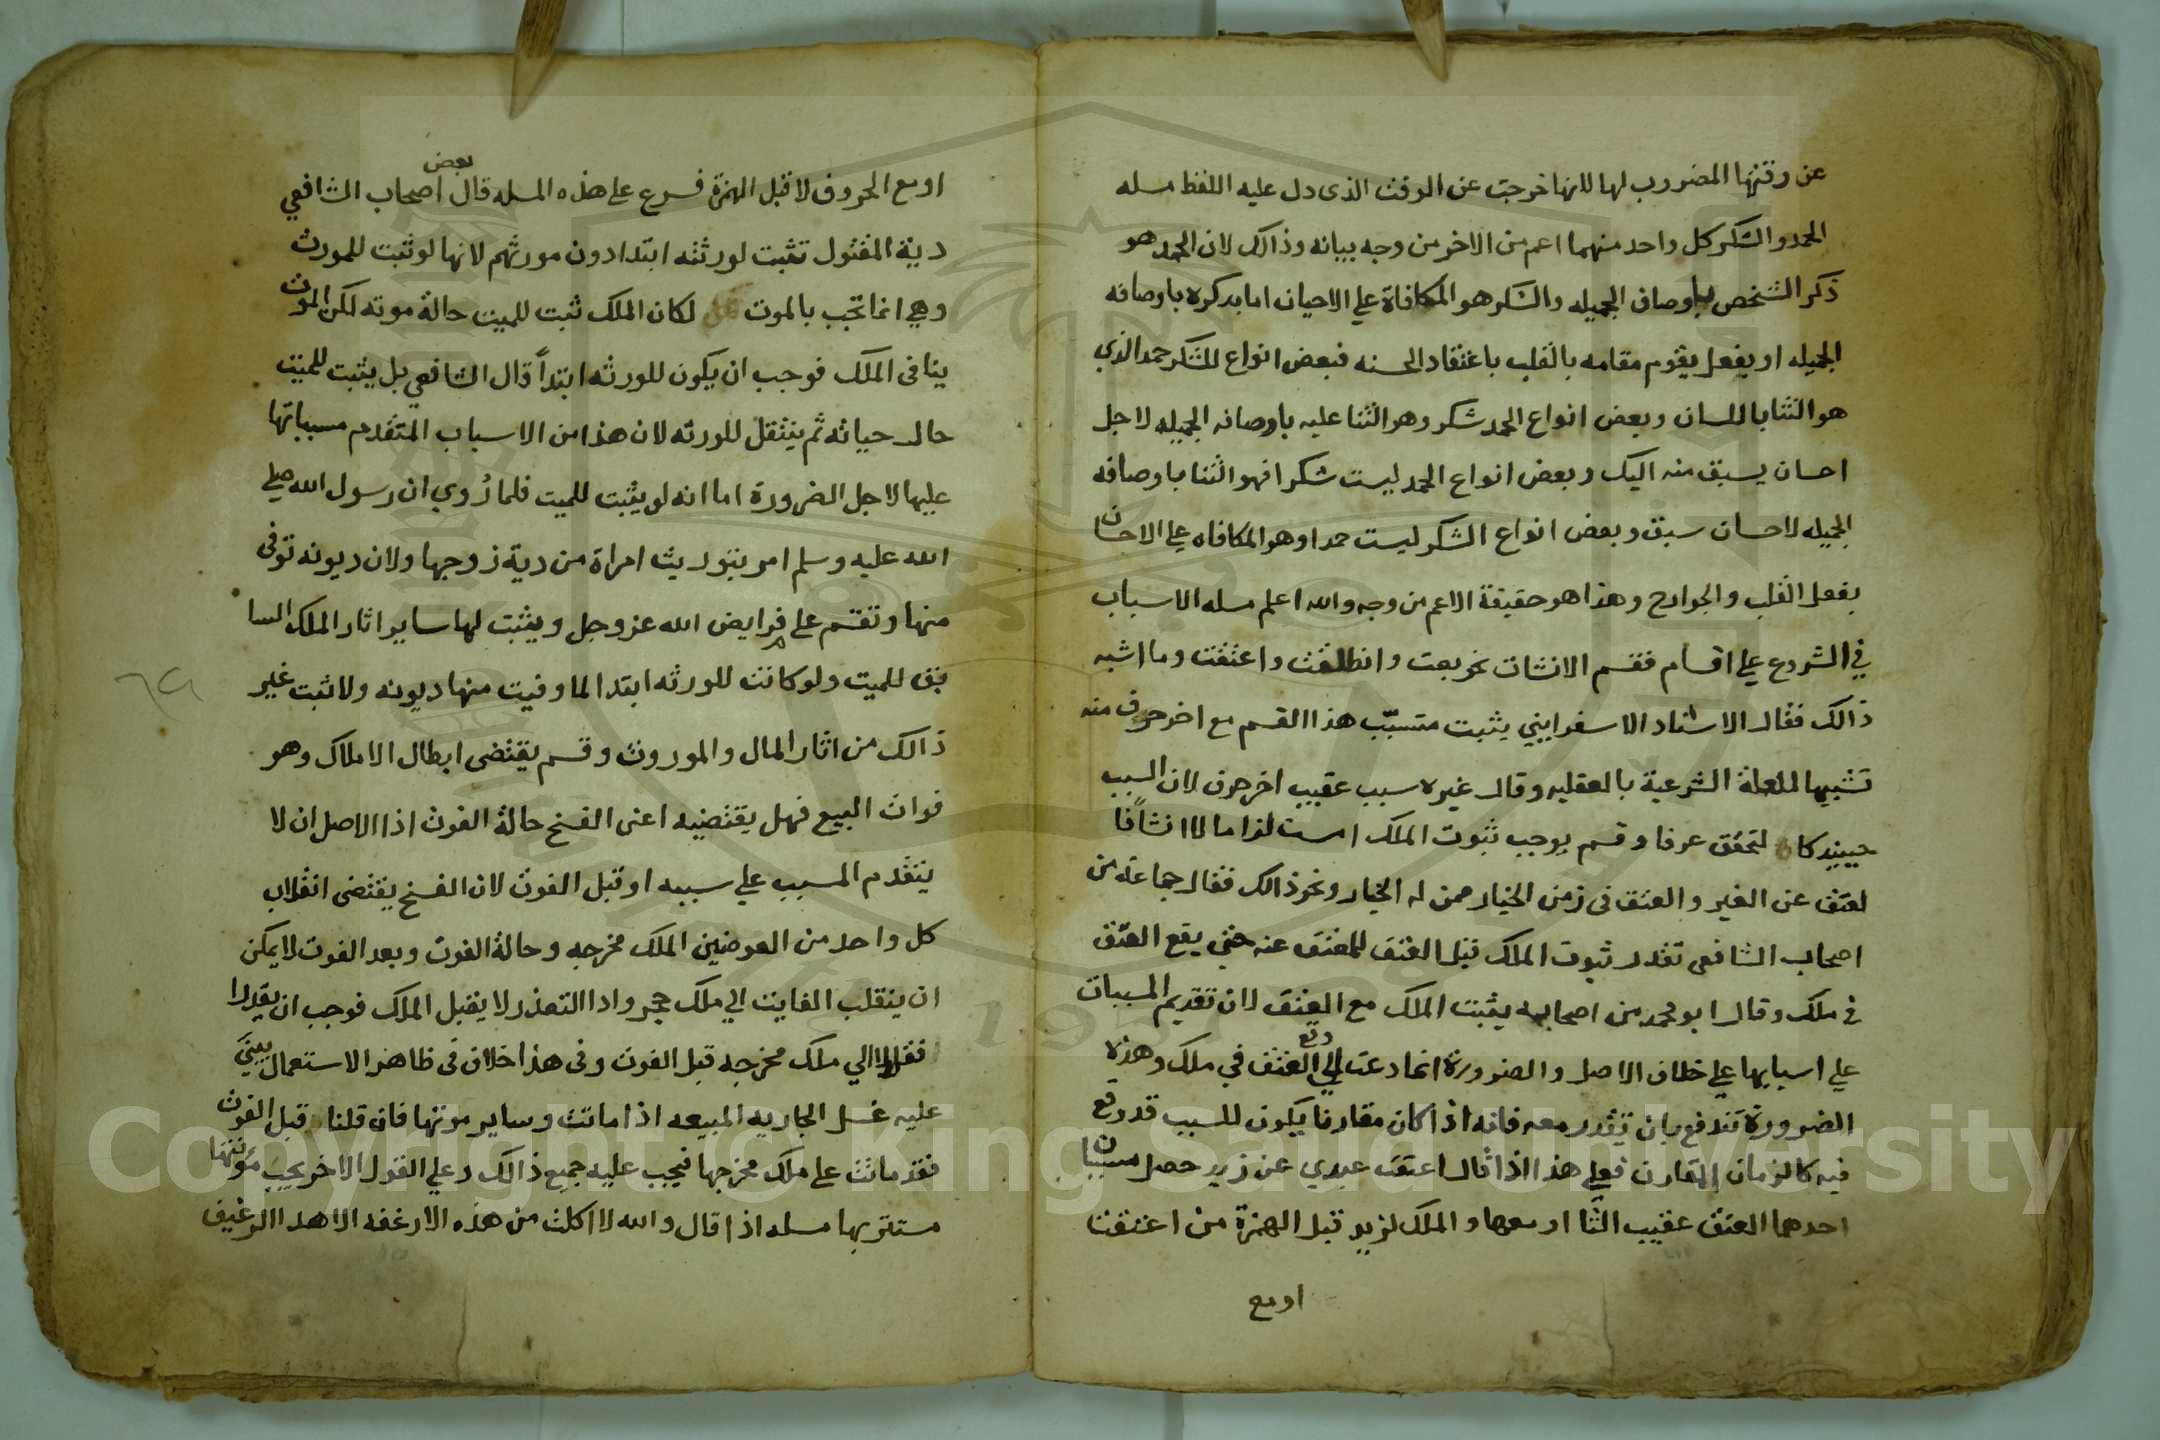 عن رقتنها المضروب لها لانها خرجت عن الوقت الذى دل عليه اللفظ مسله
الحمد والشكر كل واحد منهما اعم من الاخر من وجه بيبانه وذالك لان الحمد هو
ذكر الشخص باوصاف الجميله والشكر هو المكافاة علي الاحيان اما بدكره باوصافه
الجميله او بفعل يقوم مقامه بالقلب باعتقاد الحسنه فبعض انواع الشكر حمد الذي
هو الثنا باللسان وبعض انواع الحمد شكر وهو الثنا عليه باوصافه الجميله لاجل
احسان يسبق منه اليك وبعض انواع الحمد ليست شكرا فهو الثنا باوصافه
الجميله لاحسان سبق وبعض انواع الشكر ليست حمدا وهو المكافاه علي الاحسان
بفعل القلب والجوارح وهذا هو حقيقة الاعم من وجه والله اعلم مسله الاسباب
في الشرع علي اقسام فقسم الانشات نحو بعت وانطلقت واعتقت وما اشبه
ذالك فقال الاستاد الاسفراييني يثبت متسبّب هذا القسم مع اخر حرف منه
تشبيها للعلة الشرعية بالعقليه وقال غيره سبب عقيب اخر حرف لان السبب
حينيد كان لتحقق عرفا وقسم يوجب ثبوت الملك استلزاما لا انشاًا
لعتق عن الغير والعتق فى زمن الخيار ممن له الخيار ونحو ذالك فقال جماعة من
اصحاب الشافعى تقدر ثبوت الملك قبل العتق للمعتق عنه حتي يقع العتق
في ملك وقال ابو محمد من اصحابه يثبت الملك مع العتق لان تقديم المسببات
علي اسبابها علي خلاف الاصل والضرورة انما دعت الي وقع العتق في ملك وهذه
الضرورة تندفع بان تقدر معه فانه اذا كان مقارنا يكون للسبب قد وقع
فيه كالزمان المقارن فعلي هذا اذا قال اعتق عبدي عن زيد حصل مسببان
احدهما العتق عقيب التا او معها والملك لزيد قبل الهمزة من اعتقت
او مع
او مع الحروف لا قبل الهمزة فرع على هذه المسله قال بعض اصحاب الشافعي
دية المقتول تثبت لورثته ابتدا دون مورثهم لانها لو ثبت للمورث
وهي انما تجب بالموت لكان الملك ثبت للميت حالة موته لكن الموت
ينافى الملك فوجب ان يكون للورثه ابتداً قال الشافعي بل يثبت للميت
حال حياته ثم ينتقل للورثه لان هذا من الاسباب المتقدم مسبباتها
عليها لاجل الضرورة اما انه لو يثبت للميت فلما رُوي ان رسول الله صلي
الله عليه وسلم امر بتوريث امراة من دية زوجها ولان ديونه توفى
منها وتقسم على فرايض الله عز وجل ويثبت لها ساير اثار الملك السا
بق للميت ولو كانت للورثه ابتدا لما وفيت منها ديونه ولا ثبت غير
ذالك من اثار المال والموروث وقسم يقتضى ابطال الاملاك وهو
فوات البيع فهل يقتضيه اعنى الفسخ حالة الفوت اذا الاصل ان لا
يتقدم المسبب علي سببه او قبل الفوت لان الفسخ يقتضى انقلاب
كل واحد من العوضين الملك مخرجه وحالة الفوت وبعد الفوت لا يمكن
ان ينقلب الفايت الي ملك حجر واذا التعذر لا يقبل الملك فوجب ان يقدرا
الي ملك مخرجه قبل الفوت وفى هذا خلاف فى ظاهر الاستعمال يبنى
عليه غسل الجاريه المبيعه اذا ماتت وساير موتها فان قلنا قبل الفوت
فقد ماتت على ملك مخرجها فيجب عليه جميع ذالك وعلي القول الاخر يجب مؤنتها
مستتربها مسله اذا قال والله لا اكلت من هذه الارغفه الا هدا الرغيف